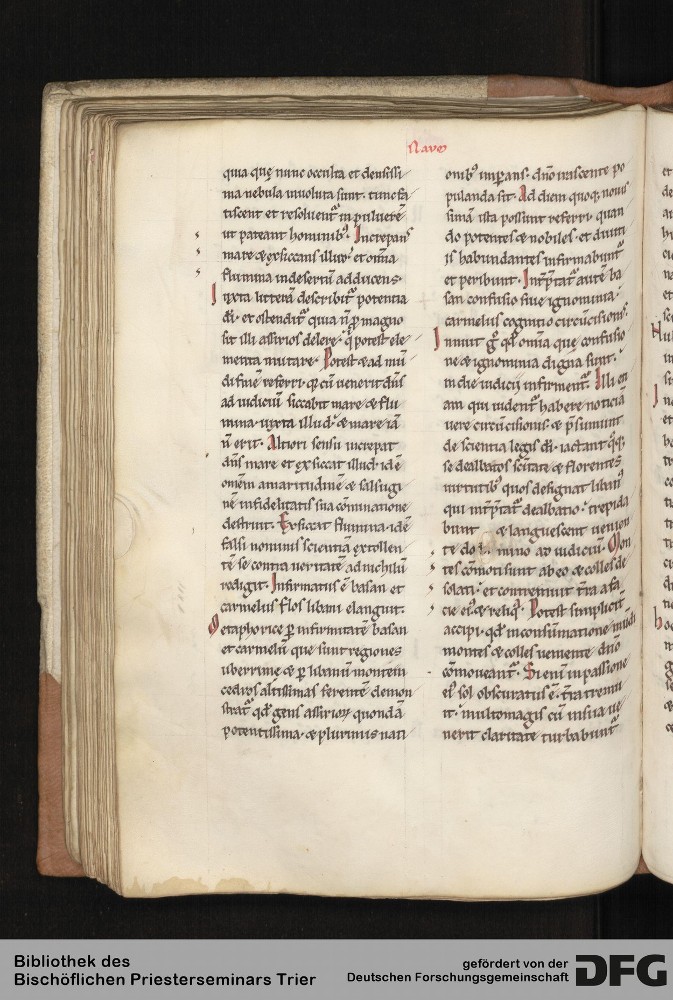 Naum
quia quę nunc occulta et densissi
ma nebula inuoluta sunt. tunc fa
tiscent et resoluentᷣ in puluerē
ut pateant hominibꝰ. Increpans
mare & exsiccans illud. et omnia
flumina in desertū adducens.
Iuxta litterā describitᷣ potentia
dī. et ostenditᷣ quia n̄ ꝓ magno
sit illi assirios delere. qͥ potest ele
menta mutare. Potest & ad mū
di finē referri. qͥ cū uenerit dn̄s
ad iudiciū siccabit mare & flu
mina. iuxta illud. & mare iā
n̄ erit. Altiori sensu increpat
dn̄s mare et exsiccat illud. id ē
omēm amaritudinē & salsugi
nē infidelitatis sua cōminatione
destruit. Exsiccat flumina. id ē
falsi nominis scientiā extollen
tē se contra ueritatē ad nichilū
redigit. Infirmatus ē basan et
carmelus. flos libani elanguit.
Metaphorice ꝑ infirmitatē basan
et carmelū que sunt regiones
uberrime & ꝑ libanū montem
cedros altissimas ferentē demon
stratᷣ qd̄ gens assirioꝝ quondā
potentissima. & plurimis nati
onibꝰ imꝑans. dn̄o irascente po
pulanda sit. Ad diem quoqꝫ nouis
simā ista possunt referri. quan
do potentes & nobiles. et diuiti
is habundantes infirmabuntᷣ
et peribunt. Intꝑtatᷣ autē ba
san confusio siue ignominia.
carmelus cognitio circūcisionis.
Innuit gͦ qd̄ omnia que confusio
ne & ignominia digna sunt.
in die iudicii infirmentᷣ. Illi eti
am qui uidentᷣ habere noticiā
uere circūcisionis. & p̄sumunt
de scientia legis dī. iactant qͦqꝫ
se dealbatos scītate & florentes
uirtutibꝰ quos designat libanꝰ
qui intꝑtatᷣ dealbatio. trepida
bunt & languescent uenien
te domino ad iudiciū. Mon
tes cōmoti sunt ab eo & colles de
solati. et contremuit tr̄ra a fa
cie eiꝰ & reliqͣ. Potest simplicit̄
accipi. qd̄ in consūmatione mundi
montes & colles ueniente dn̄o
cōmoueantᷣ. Si enī in passione
eiꝰ sol obscuratus ē. tr̄ra tremu
it. multo magis cū in sua ue
nerit claritate turbabuntᷣ
Bibliothek des
Bischöflichen Priesterseminars Trier
gefördert von der
Deutschen Forschungsgemeinschaft
DFG